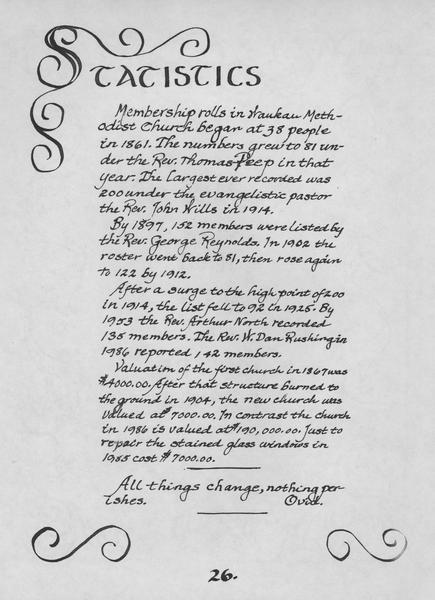 STATISTICS
Membership rolls in Waukau Meth-
odist Church began at 38 people
in 1861. The numbers grew to 81 un-
der the Rev. Thomas Peep in that
year. The largest ever recorded was
200 under the evangelistic pastor
the Rev. John Wills in 1914.
By 1897, 152 members were listed by
the Rev. George Reynolds. In 1902 the
roster went back to 81, then rose again
to 122 by 1912.
After a surge to the high point of 200
in 1914, the list fell to 92 in 1925. By
1953 the Rev. Arthur North recorded
135 members. The Rev. W. Dan Rushing in
1986 reported 142 members.
Valuation of the first church in 1867 was
$4000.00. After that structure burned to
the ground in 1904, the new church was
valued at $7000.00. In contrast the church
in 1986 is valued at $190,000.00. Just to
repair the stained glass windows in
1985 cost $7000.00.
All things change, nothing per-
ishes. Ovid.
26.